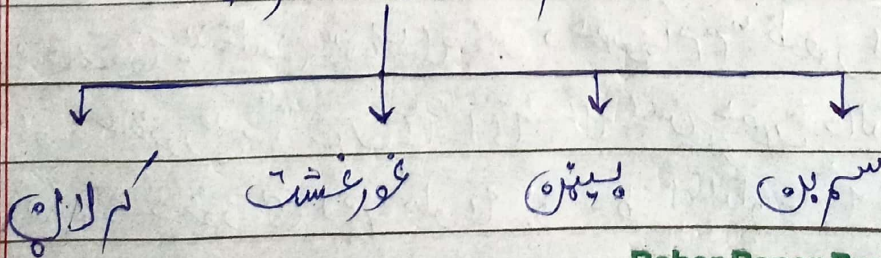 سړبن بیټن غورغشت کرلاڼ